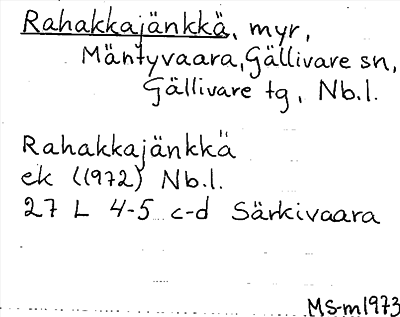 Rahakkajänkkä, myr,
Mäntyvaara, Gällivare sn,
Gällivare tg, Nb.l.
Rahakkajänkkä
ek (1972) Nb.l.
27 L 4-5 c-d Särkivaara
MS-m1973